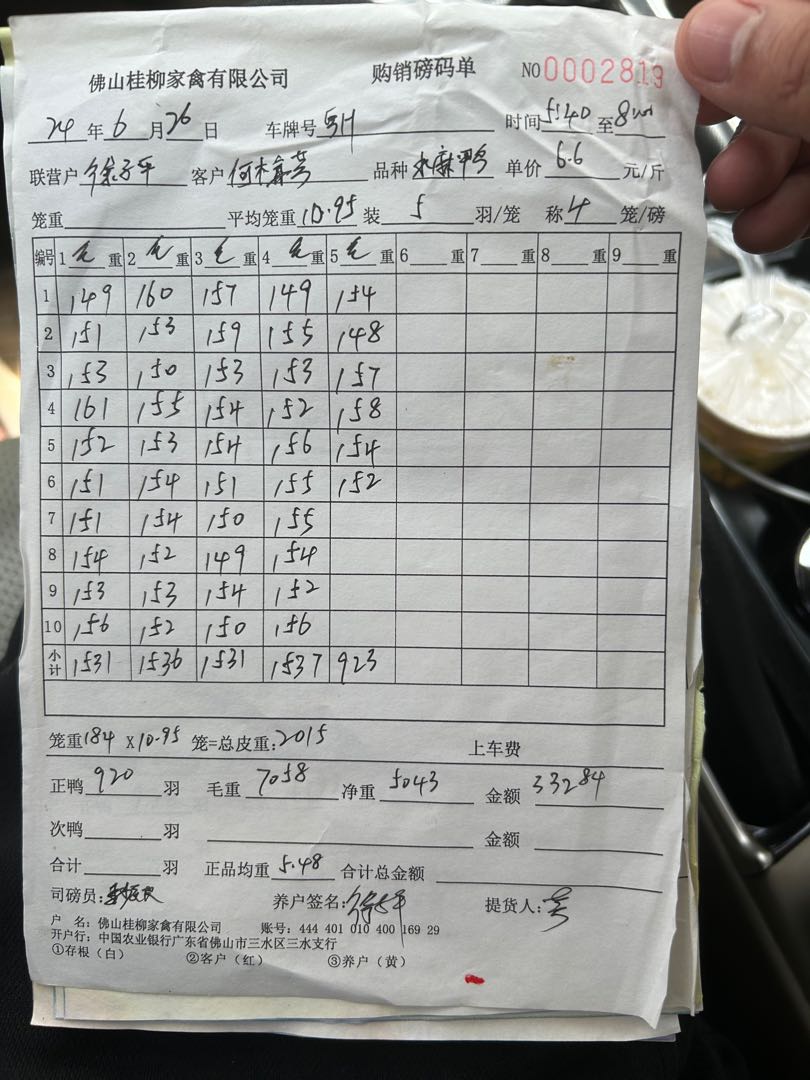 佛山桂柳家禽有限公司 购销磅码单 NO 0002819
24 年 6 月 26 日 车牌号 时间 5:40 至 8:00
联营户 徐子平 客户 品种 水麻鸭 单价 6.6 元/斤
笼重 平均笼重 10.95 装 5 羽/笼 称 4 笼/磅
编号 1 毛 重 2 毛 重 3 毛 重 4 毛 重 5 毛 重 6 重 7 重 8 重 9 重
1 149 160 157 149 154
2 151 153 159 155 148
3 153 150 153 153 157
4 161 155 154 152 158
5 152 153 154 156 154
6 151 154 151 155 152
7 151 154 150 155
8 154 152 149 154
9 153 153 154 152
10 156 152 150 156
小计 1531 1536 1531 1537 923
笼重 184 X 10.95 笼=总皮重: 2015 上车费
正鸭 920 羽 毛重 7058 净重 5043 金额 33284
次鸭 羽 金额
合计 羽 正品均重 5.48 合计总金额
司磅员: 养户签名: 提货人:
户 名: 佛山桂柳家禽有限公司 账号: 444 401 010 400 169 29
开户行: 中国农业银行广东省佛山市三水区三水支行
①存根（白） ②客户（红） ③养户（黄）